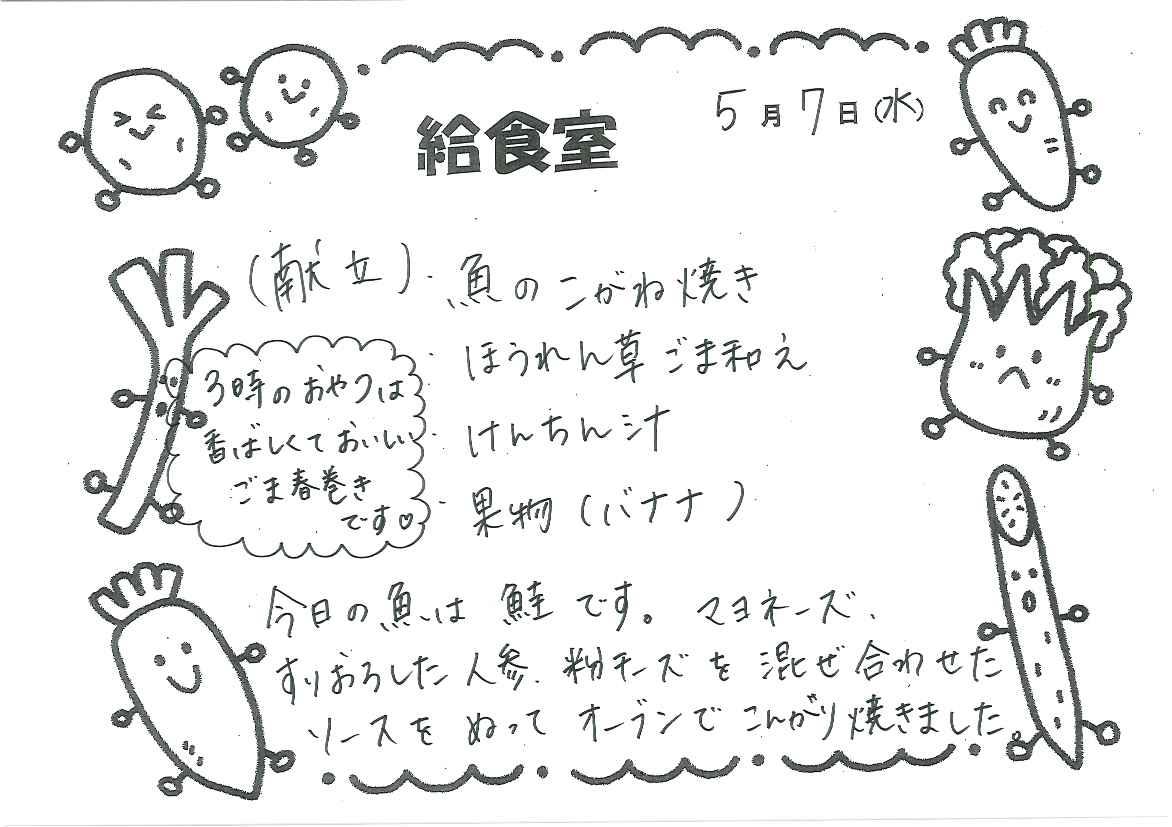 給食室
5月7日(水)
(献立)・魚のこがね焼き
・ほうれん草ごま和え
・けんちん汁
・果物(バナナ)
3時のおやつは
香ばしくておいしい
ごま春巻き
です♡
今日の魚は鮭です。マヨネーズ、
すりおろした人参、粉チーズを混ぜ合わせた
ソースをぬってオーブンでこんがり焼きました。